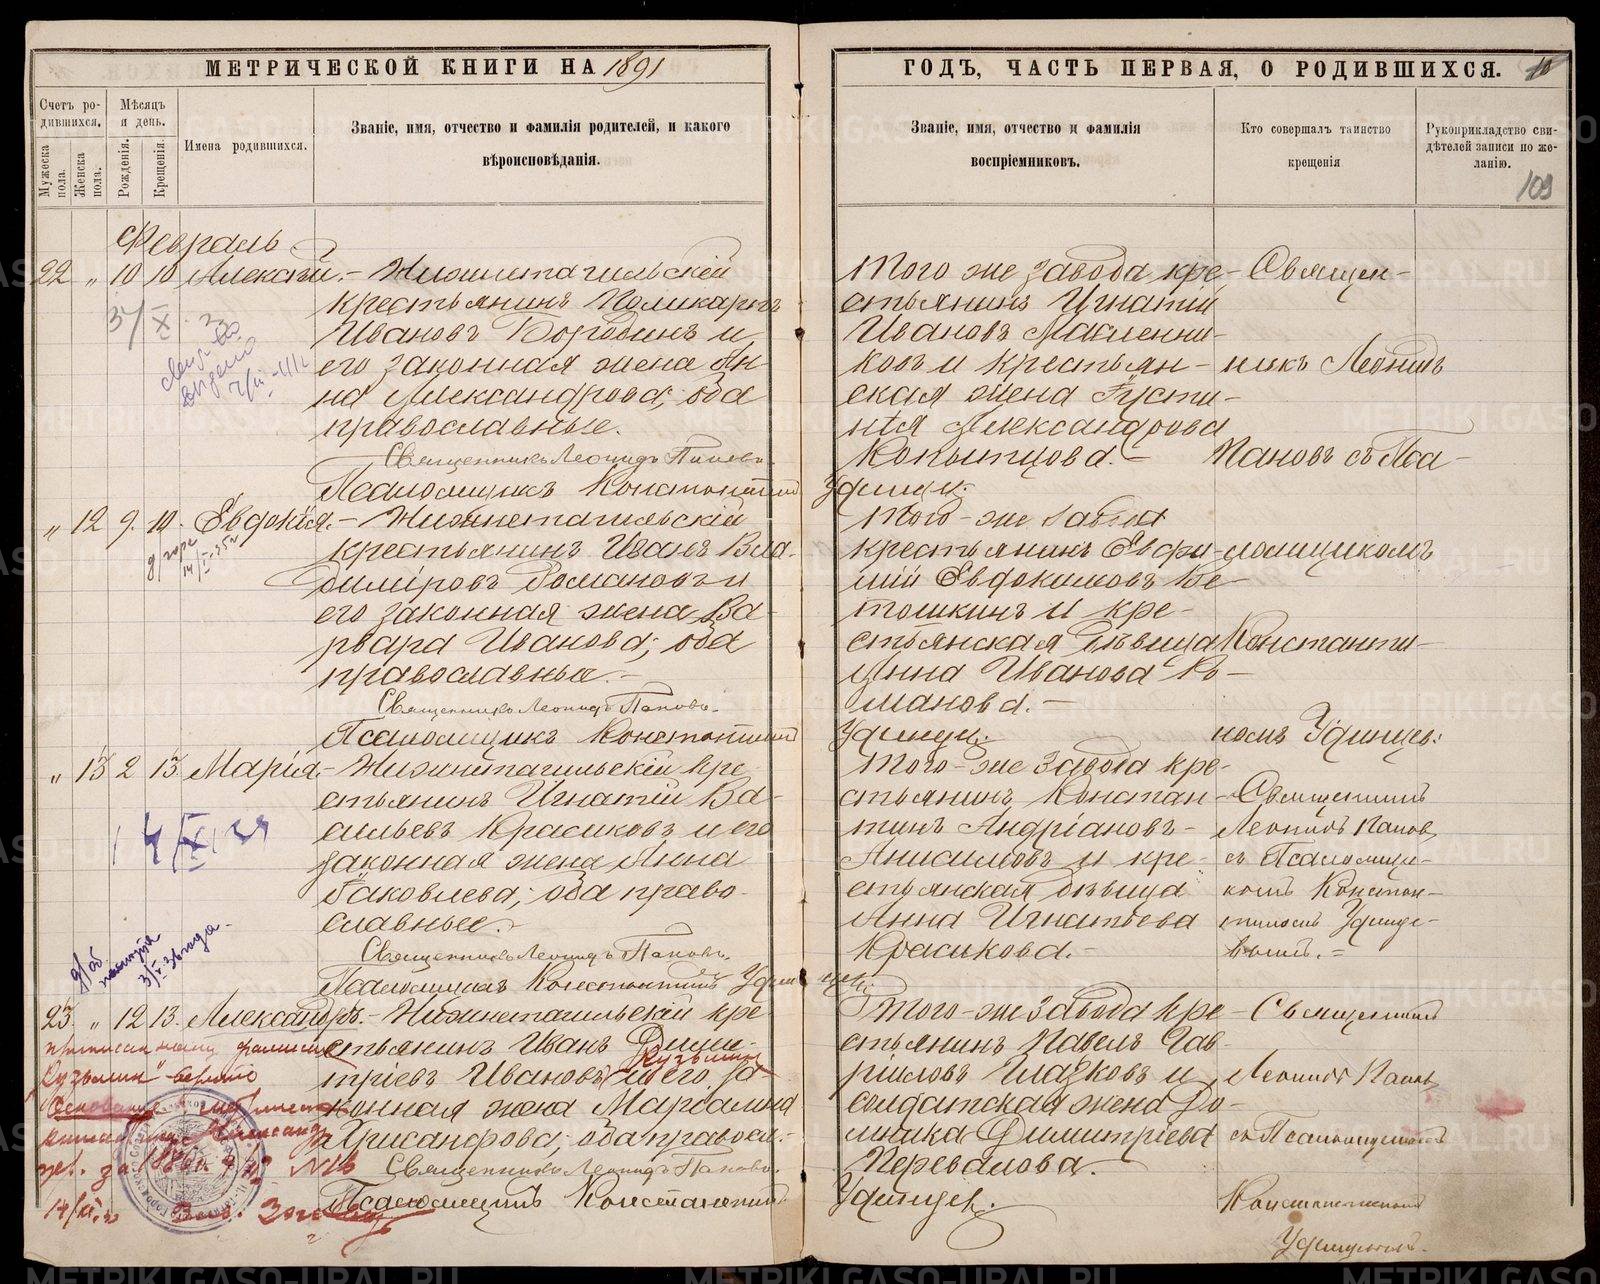 МЕТРИЧЕСКОЙ КНИГИ НА 1891
Счетъ родившихся.
Мужеска пола.
Женска пола.
Мѣсяцъ и день.
Рожденія.
Крещенія.
Имена родившихся.
Званіе, имя, отчество и фамилія родителей, и какого
вѣроисповѣданія.
Февраль
22 " 10 10 Алексѣй. - Нижнетагильскій
крестьянинъ Поликарпъ
Ивановъ Бородинъ и
его законная жена Ан-
на Александрова; оба
православные.
Священникъ Леонидъ Пановъ.
Псаломщикъ Константинъ
" 12 9. 10. Евдокія. - Нижнетагильскій
крестьянинъ Иванъ Вла-
диміровъ Романовъ и
его законная жена Ва-
рвара Иванова; оба
православные. -
Священникъ Леонидъ Пановъ.
Псаломщикъ Константинъ
" 13 2 13. Марія. - Нижнетагильскій кре-
стьянинъ Игнатій Ва-
сильевъ Красиковъ и его
законная жена Анна
Яковлева; оба право-
славные. -
Священникъ Леонидъ Пановъ.
Псаломщикъ Константинъ Удин
23. " 12 13. Александръ. - Нижнетагильскій кре-
стьянинъ Иванъ Дими-
тріевъ Ивановъ и его за-
Кузьмин
конная жена
Хрисанфова; оба правосл. -
Священникъ Леонидъ Пановъ.
Псаломщикъ Константинъ
ГОДЪ, ЧАСТЬ ПЕРВАЯ, О РОДИВШИХСЯ. 10
Званіе, имя, отчество и фамилія
воспріемниковъ.
Кто совершалъ таинство
крещенія
Рукоприкладство сви-
дѣтелей записи по же-
ланію.
109
Того же завода кре-
стьянинъ Игнатій
Ивановъ Масленни-
ковъ и крестьян-
ская жена Густи-
нія Александрова
Копытцова. -
Удинцъ.
Священ-
никъ Леонидъ
Пановъ съ Пса-
Того-же завода
крестьянинъ Евфи-
мій Евдокимовъ Ве-
тошкинъ и кре-
стьянская дѣвица
Анна Иванова Ро-
манова. -
Удинцъ.
ломщикомъ
Константи-
номъ Удинцев:
Того-же завода кре-
стьянинъ Констан-
тинъ Андріановъ
Анисимовъ и кре-
стьянская дѣвица
Анна Игнатьева
Красикова. -
Священникъ
Леонидъ Панов,
съ Псаломщи-
комъ Констан-
тиномъ Удинце-
вымъ. =
Того-же завода кре-
стьянинъ Павелъ Гав-
ріиловъ Глазковъ и
солдатская жена До-
мника Димитріева
Перевалова.
Удинцев.
Священникъ
Леонидъ Панов
съ Псаломщикомъ
Константиномъ
Удинцевымъ.